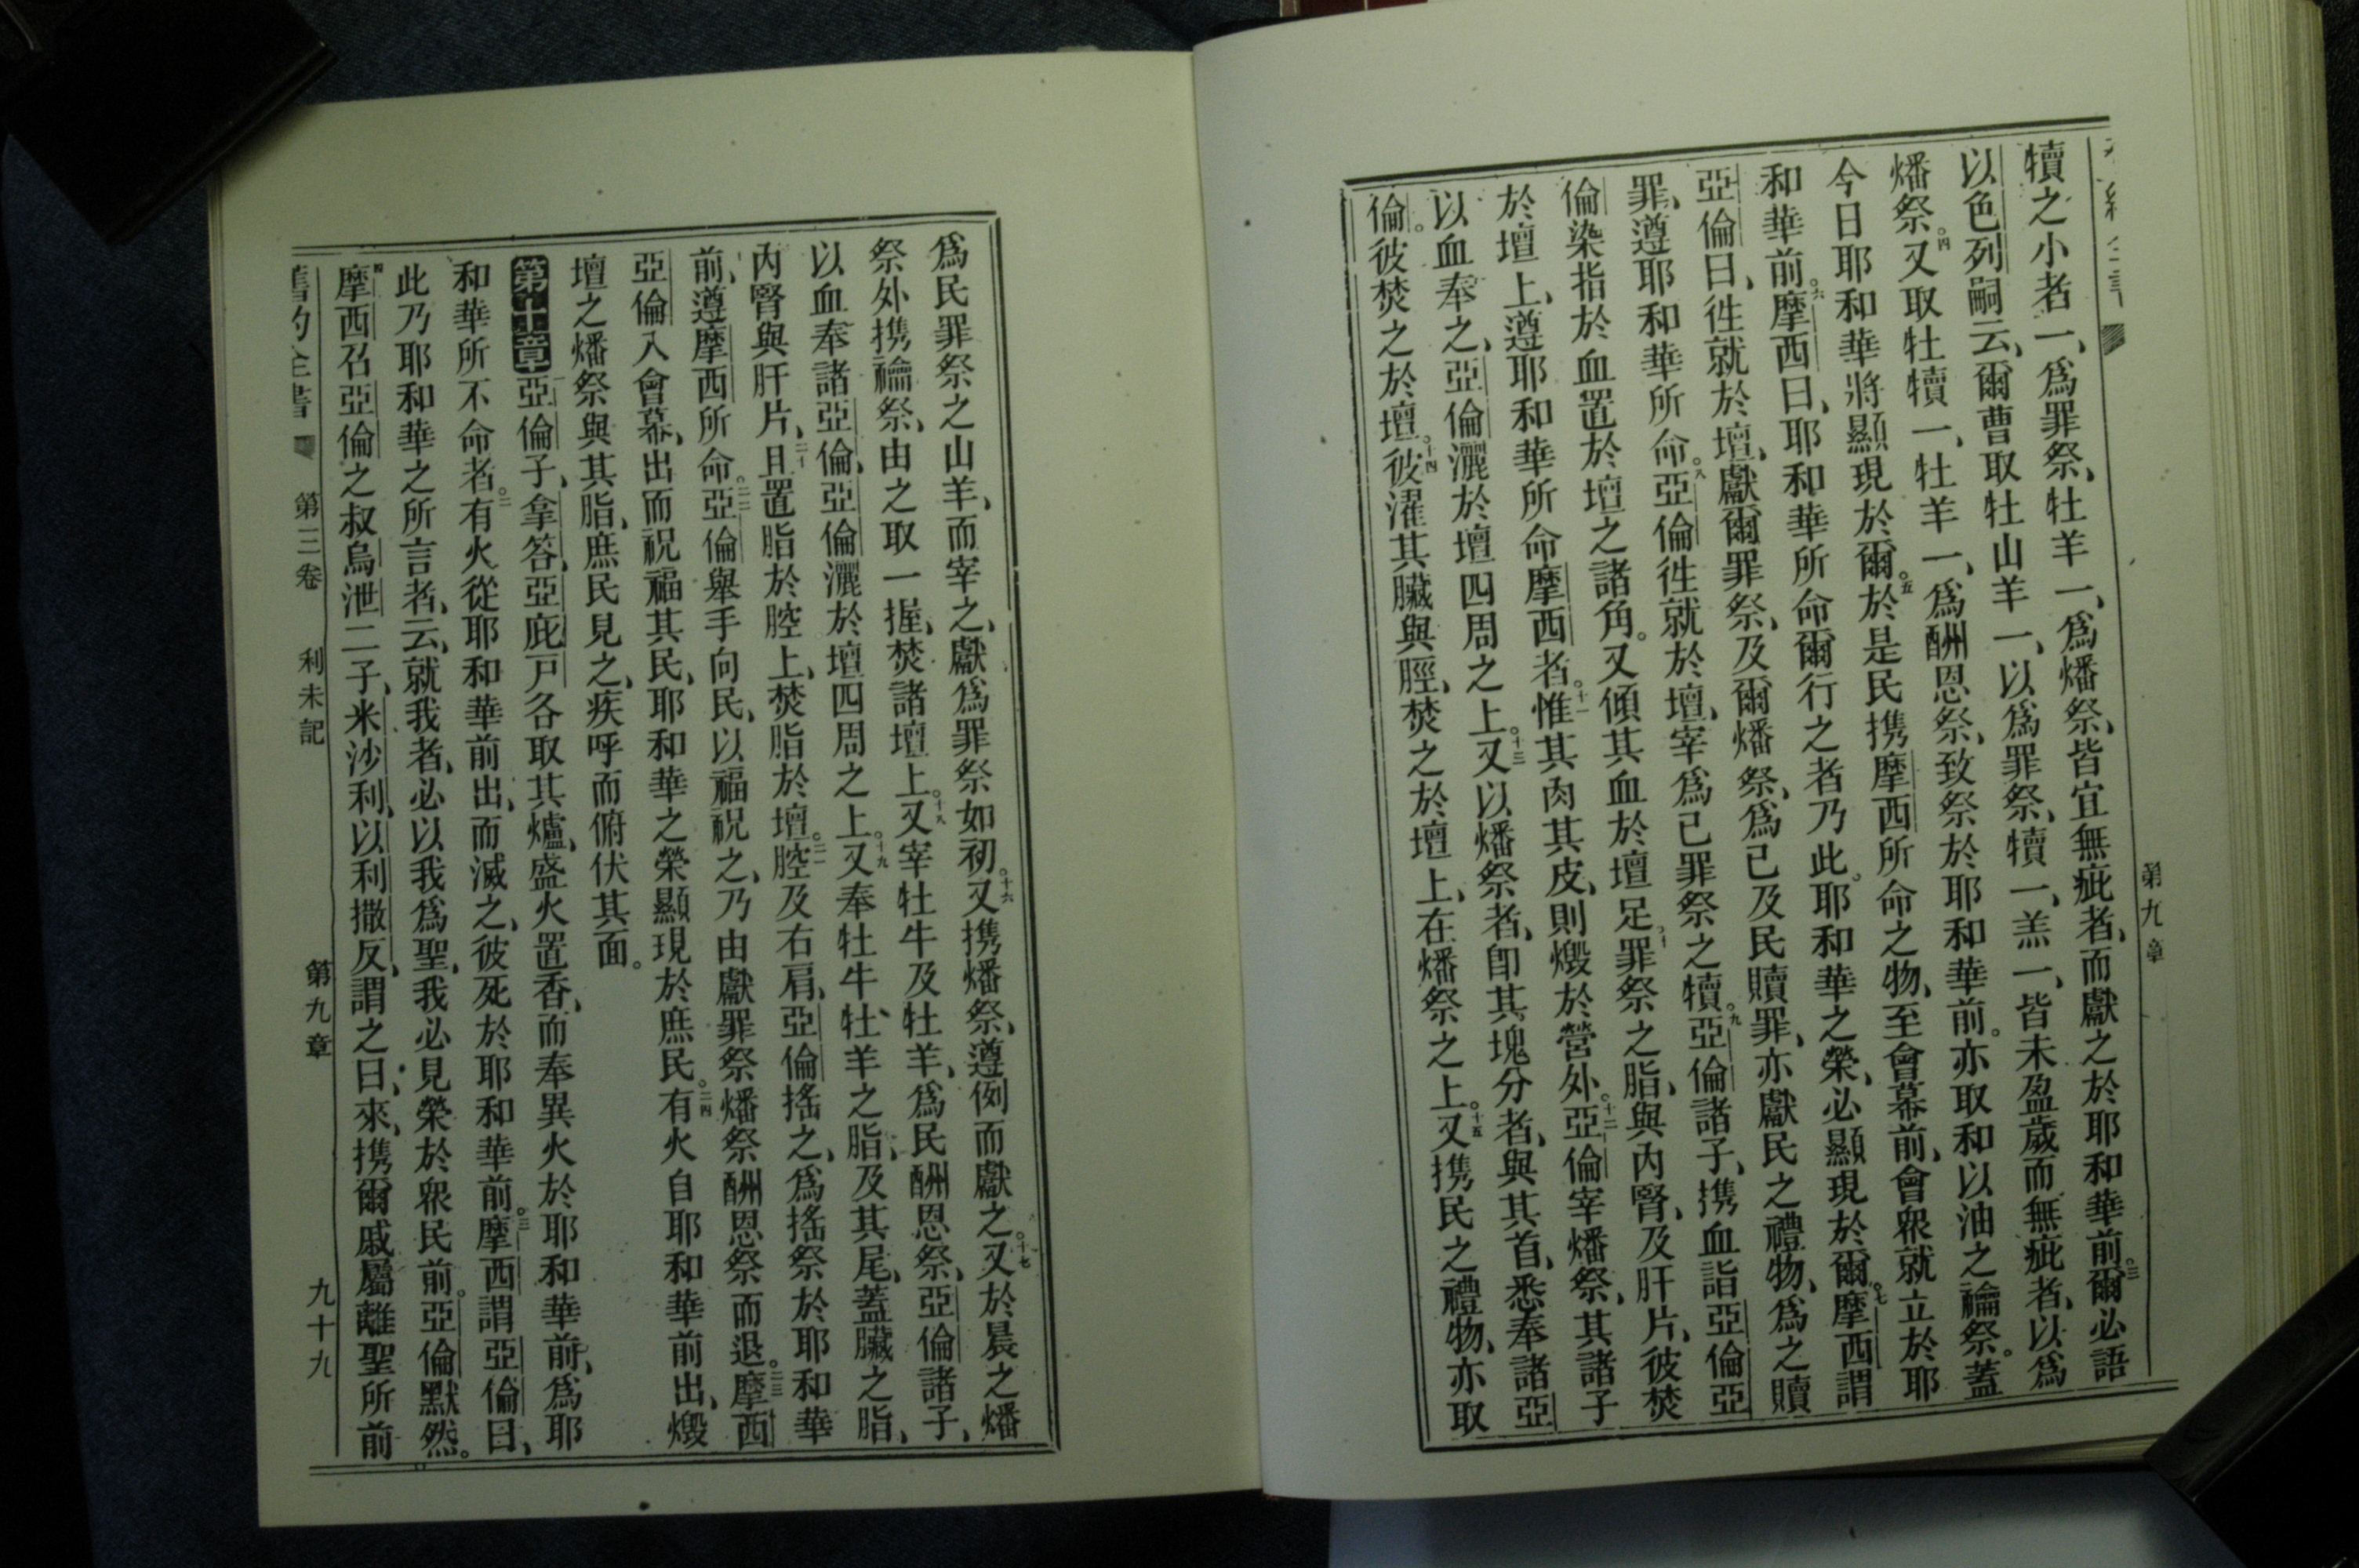 第九章
犢之小者一、爲罪祭、牡羊一、爲燔祭、皆宜無疵者、而獻之於耶和華前。三爾必語
以色列嗣云、爾曹取牡山羊一、以爲罪祭、犢一、羔一、皆未盈歲而無疵者、以爲
燔祭。四又取牡犢一、牡羊一、爲酬恩祭、致祭於耶和華前。亦取和以油之禴祭。蓋
今日耶和華將顯現於爾。五於是民携摩西所命之物、至會幕前、會衆就立於耶
和華前。六摩西曰、耶和華所命爾行之者乃此。耶和華之榮、必顯現於爾。七摩西謂
亞倫曰、徃就於壇、獻爾罪祭、及爾燔祭、爲己及民贖罪、亦獻民之禮物、爲之贖
罪、遵耶和華所命。八亞倫徃就於壇、宰爲己罪祭之犢。九亞倫諸子、携血詣亞倫、亞
倫染指於血置於壇之諸角。又傾其血於壇足。十罪祭之脂、與內腎、及肝片、彼焚
於壇上、遵耶和華所命摩西者。十一惟其肉其皮、則燬於營外。十二亞倫宰燔祭、其諸子
以血奉之、亞倫灑於壇四周之上。十三又以燔祭者、卽其塊分者、與其首、悉奉諸亞
倫。彼焚之於壇。十四彼濯其臟與脛、焚之於壇上、在燔祭之上。十五又携民之禮物、亦取
爲民罪祭之山羊、而宰之、獻爲罪祭如初。十六又携燔祭、遵例而獻之。十七又於晨之燔
祭外、携禴祭、由之取一握、焚諸壇上。十八又宰牡牛及牡羊、爲民酬恩祭、亞倫諸子、
以血奉諸亞倫、亞倫灑於壇四周之上。十九又奉牡牛牡羊之脂、及其尾、蓋臟之脂、
內腎與肝片、二十且置脂於腔上、焚脂於壇。二一腔及右肩、亞倫搖之、爲搖祭於耶和華
前、遵摩西所命。二二亞倫舉手向民、以福祝之、乃由獻罪祭燔祭酬恩祭而退。二三摩西
亞倫入會幕、出而祝福其民、耶和華之榮顯現於庶民。二四有火自耶和華前出、燬
壇之燔祭與其脂、庶民見之、疾呼而俯伏其面。
第十章亞倫子、拿答、亞庇戸各取其爐、盛火置香、而奉異火於耶和華前、爲耶
和華所不命者。二有火從耶和華前出、而滅之、彼死於耶和華前。三摩西謂亞倫曰、
此乃耶和華之所言者、云、就我者、必以我爲聖、我必見榮於衆民前。亞倫默然。
四摩西召亞倫之叔烏泄二子、米沙利、以利撒反、謂之曰、來、携爾戚屬離聖所前
舊約全書 第三卷 利未記 第九章 九十九